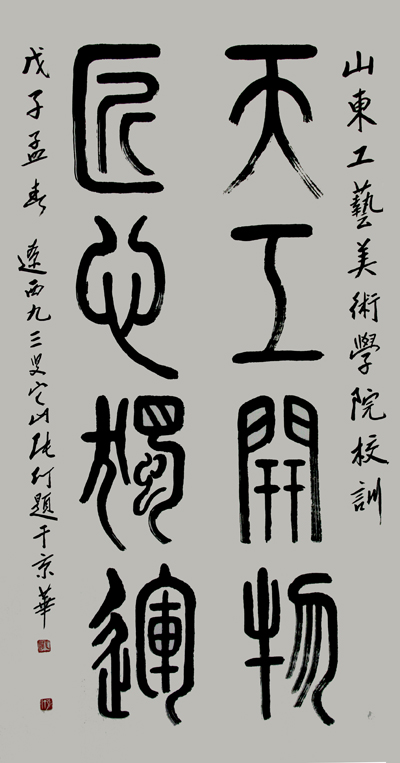 山東工藝美術學院校訓
天工開物
匠心獨運
戊子孟春 遼西九三叟它山張仃題于京華